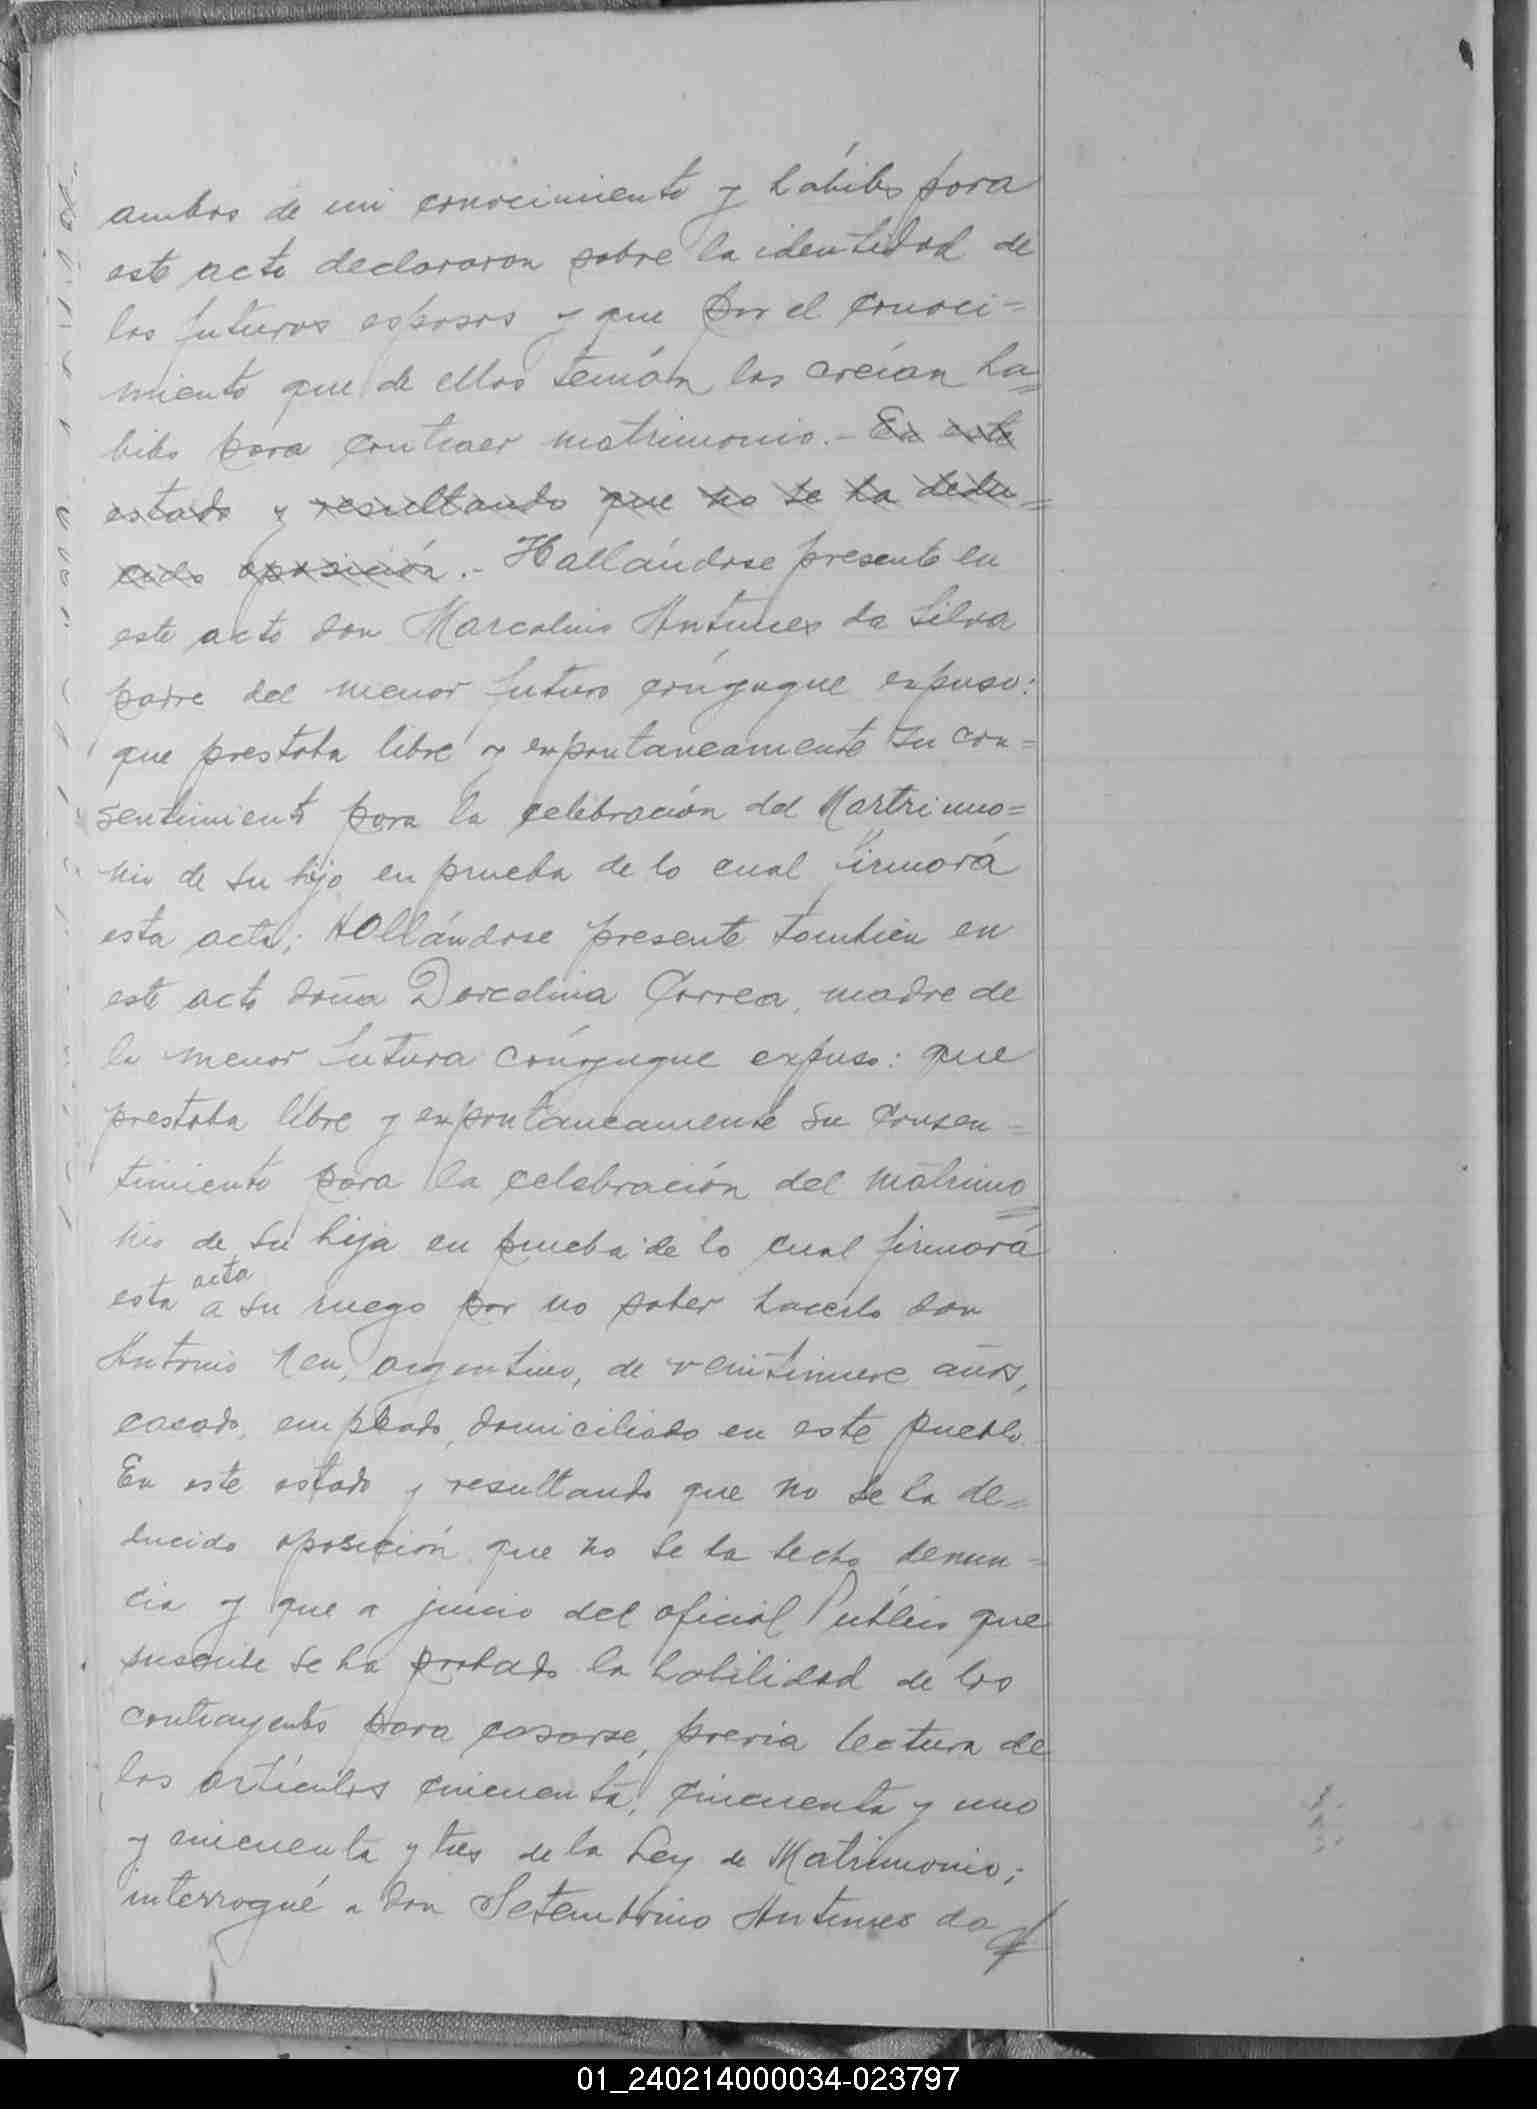 ambos de mi conocimiento y hábiles para
este acto declararon sobre la identidad de
los futuros esposos y que por el conoci=
miento que de ellos tenían los creían há=
biles para contraer matrimonio.- En este
estado y resultando que no se ha dedu=
cido oposición.- Hallándose presente en
este acto don Marcolino Antunes da Silva
padre del menor futuro cónyugue expuso:
que prestaba libre y expontaneamente su con=
sentimiento para la celebración del Martrimo=
nio de su hijo en prueba de lo cual firmará
esta acta; Hallándose presente tambien en
este acto doña Dorcelina Correa, madre de
la menor futura cónyugue expuso: que
prestaba libre y expontaneamente su consen=
timiento para la celebración del matrimo=
nio de su hija en prueba de lo cual firmará
esta acta a su ruego por no saber hacerlo don
Antonio argentino, de veintinueve años,
casado, empleado, domiciliado en este pueblo.
En este estado y resultando que no se ha de=
ducido oposición que no se ha hecho denun=
cia y que a juicio del oficial Público que
suscribe se ha probado la habilidad de los
contrayentes para casarse, previa lectura de
los artículos cincuenta, cincuenta y uno
y cincuenta y tres de la Ley de Matrimonio;
interrogué a don Setembrino Antunes da
01_240214000034-023797